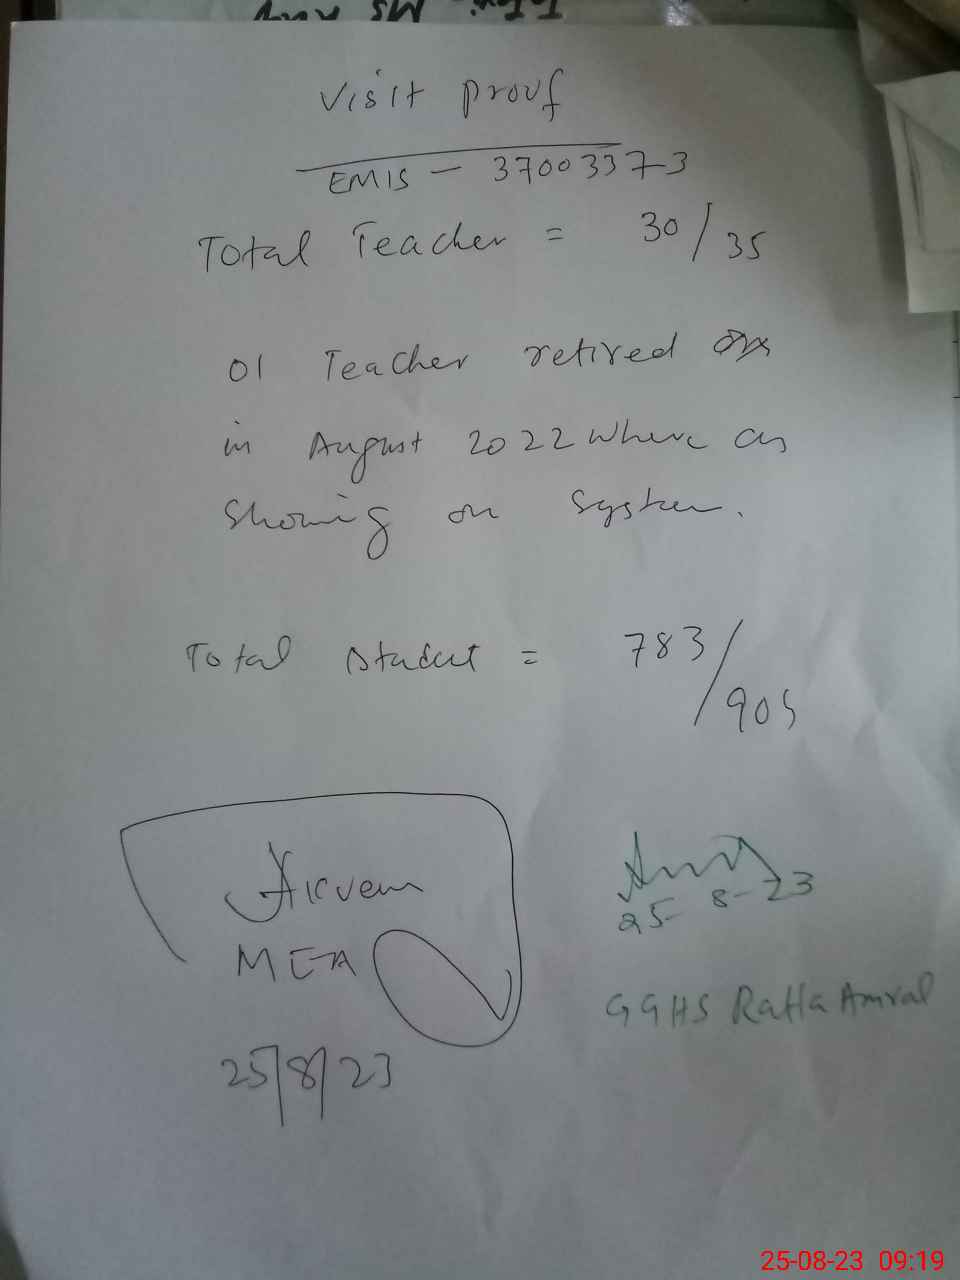 Visit Prouf
EMIS - 37003373
Total Teacher = 30/35
01 Teacher retired
in August 2022 where as
showing on system.
Total student = 783/905
MEA
25/8/23
25-8-23
GGHS Ratta Amral
25-08-23 09:19